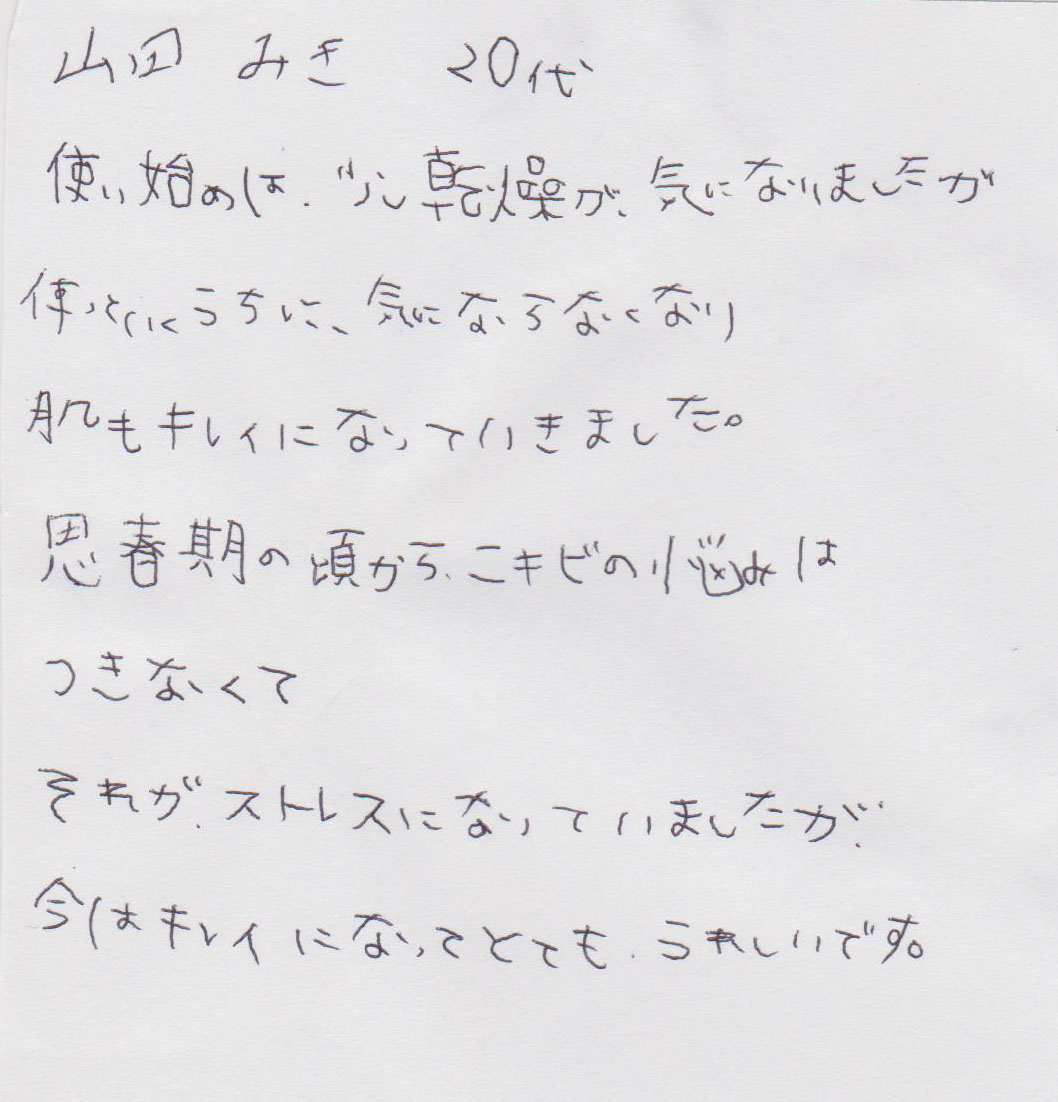 山辺 みき 20代
使い始めは、少し乾燥が、気になりましたが
使っていくうちに、気にならなくなり
肌もキレイになっていきました。
思春期の頃から、ニキビの悩みは
つきなくて
それが、ストレスになっていましたが、
今はキレイになってとても、うれしいです。